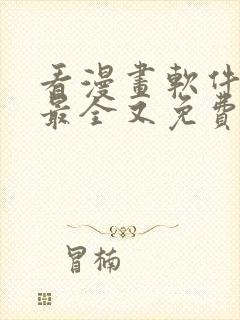 看漫畫軟件
最全又免費
冒楠